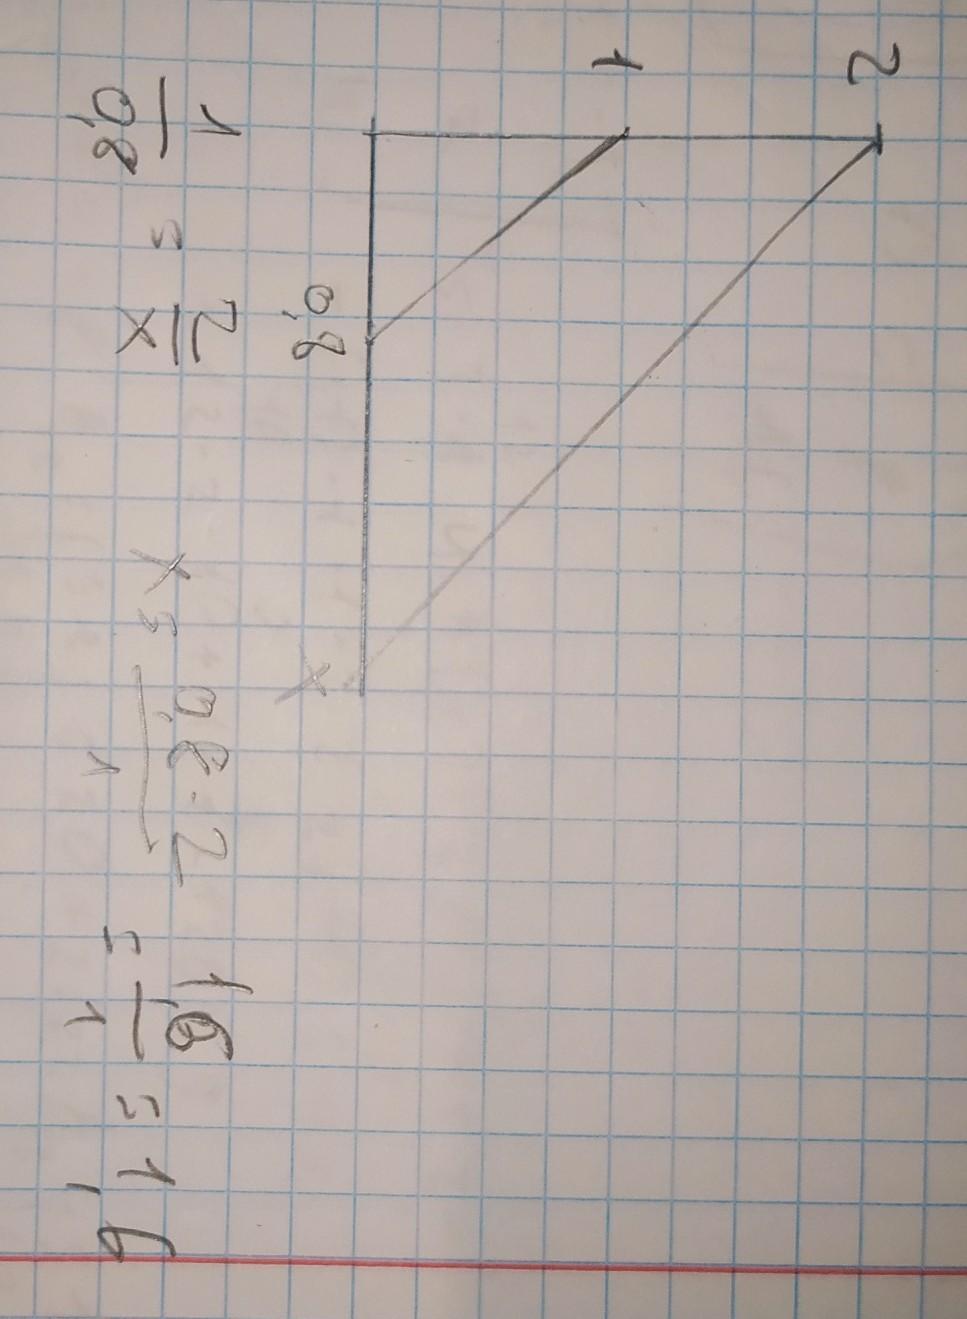 2
1
0,8 x
1/0,8 = 2/x x = 0,8·2/1 = 1,6/1 = 1,6